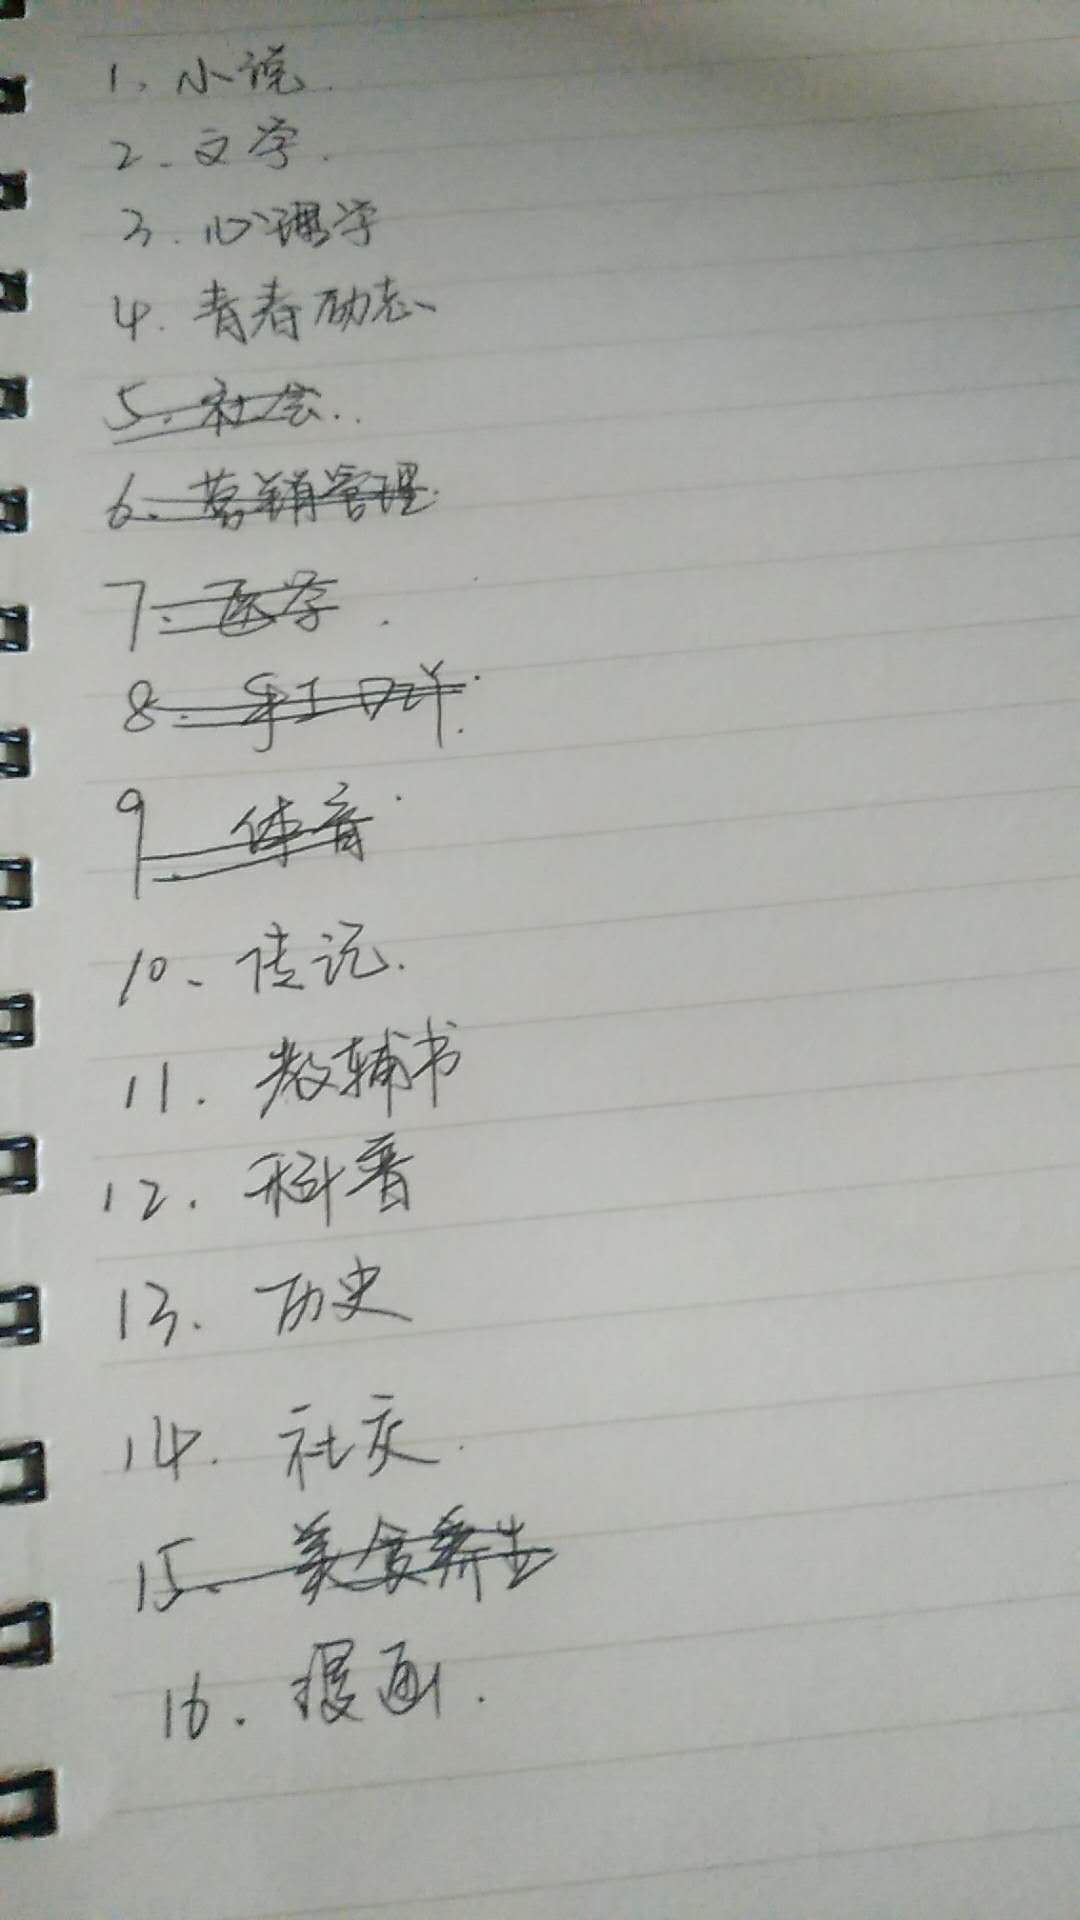 1. 小说.
2. 文学.
3. 心理学
4. 青春励志
5. 社会..
6. 营销管理.
7. 医学.
8. 手工DIY.
9. 体育.
10、传记.
11. 教辅书
12. 科普
13. 历史
14. 社交.
15. 美食养生
16. 漫画.